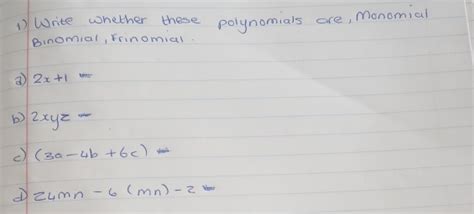 1) Write whether these polynomials are, Monomial
Binomial, Frinomial.
a) 2x+1 -
b) 2xyz -
c) (3a-4b+6c) -
d) 24mn - 6 (mn) - 2 -